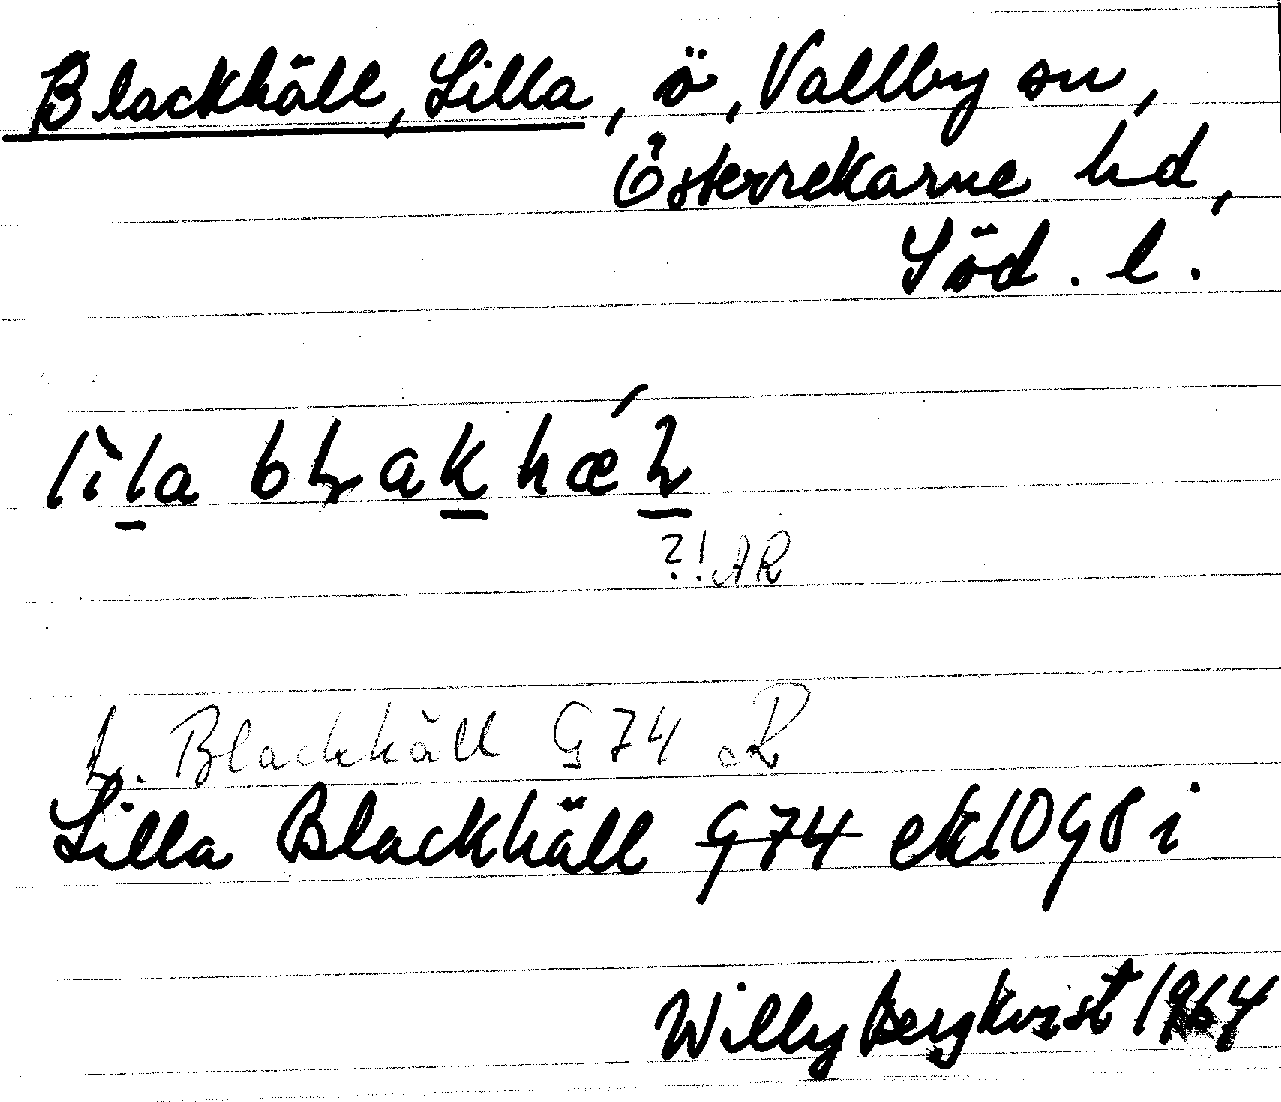 Blackhäll, Lilla, ö, Vallby sn,
Österrekarne hd,
Söd. l.
?! AR
L. Blackhäll G74 R
Lilla Blackhäll G74 ek 10 G8 i
Willy Bergkvist 1964